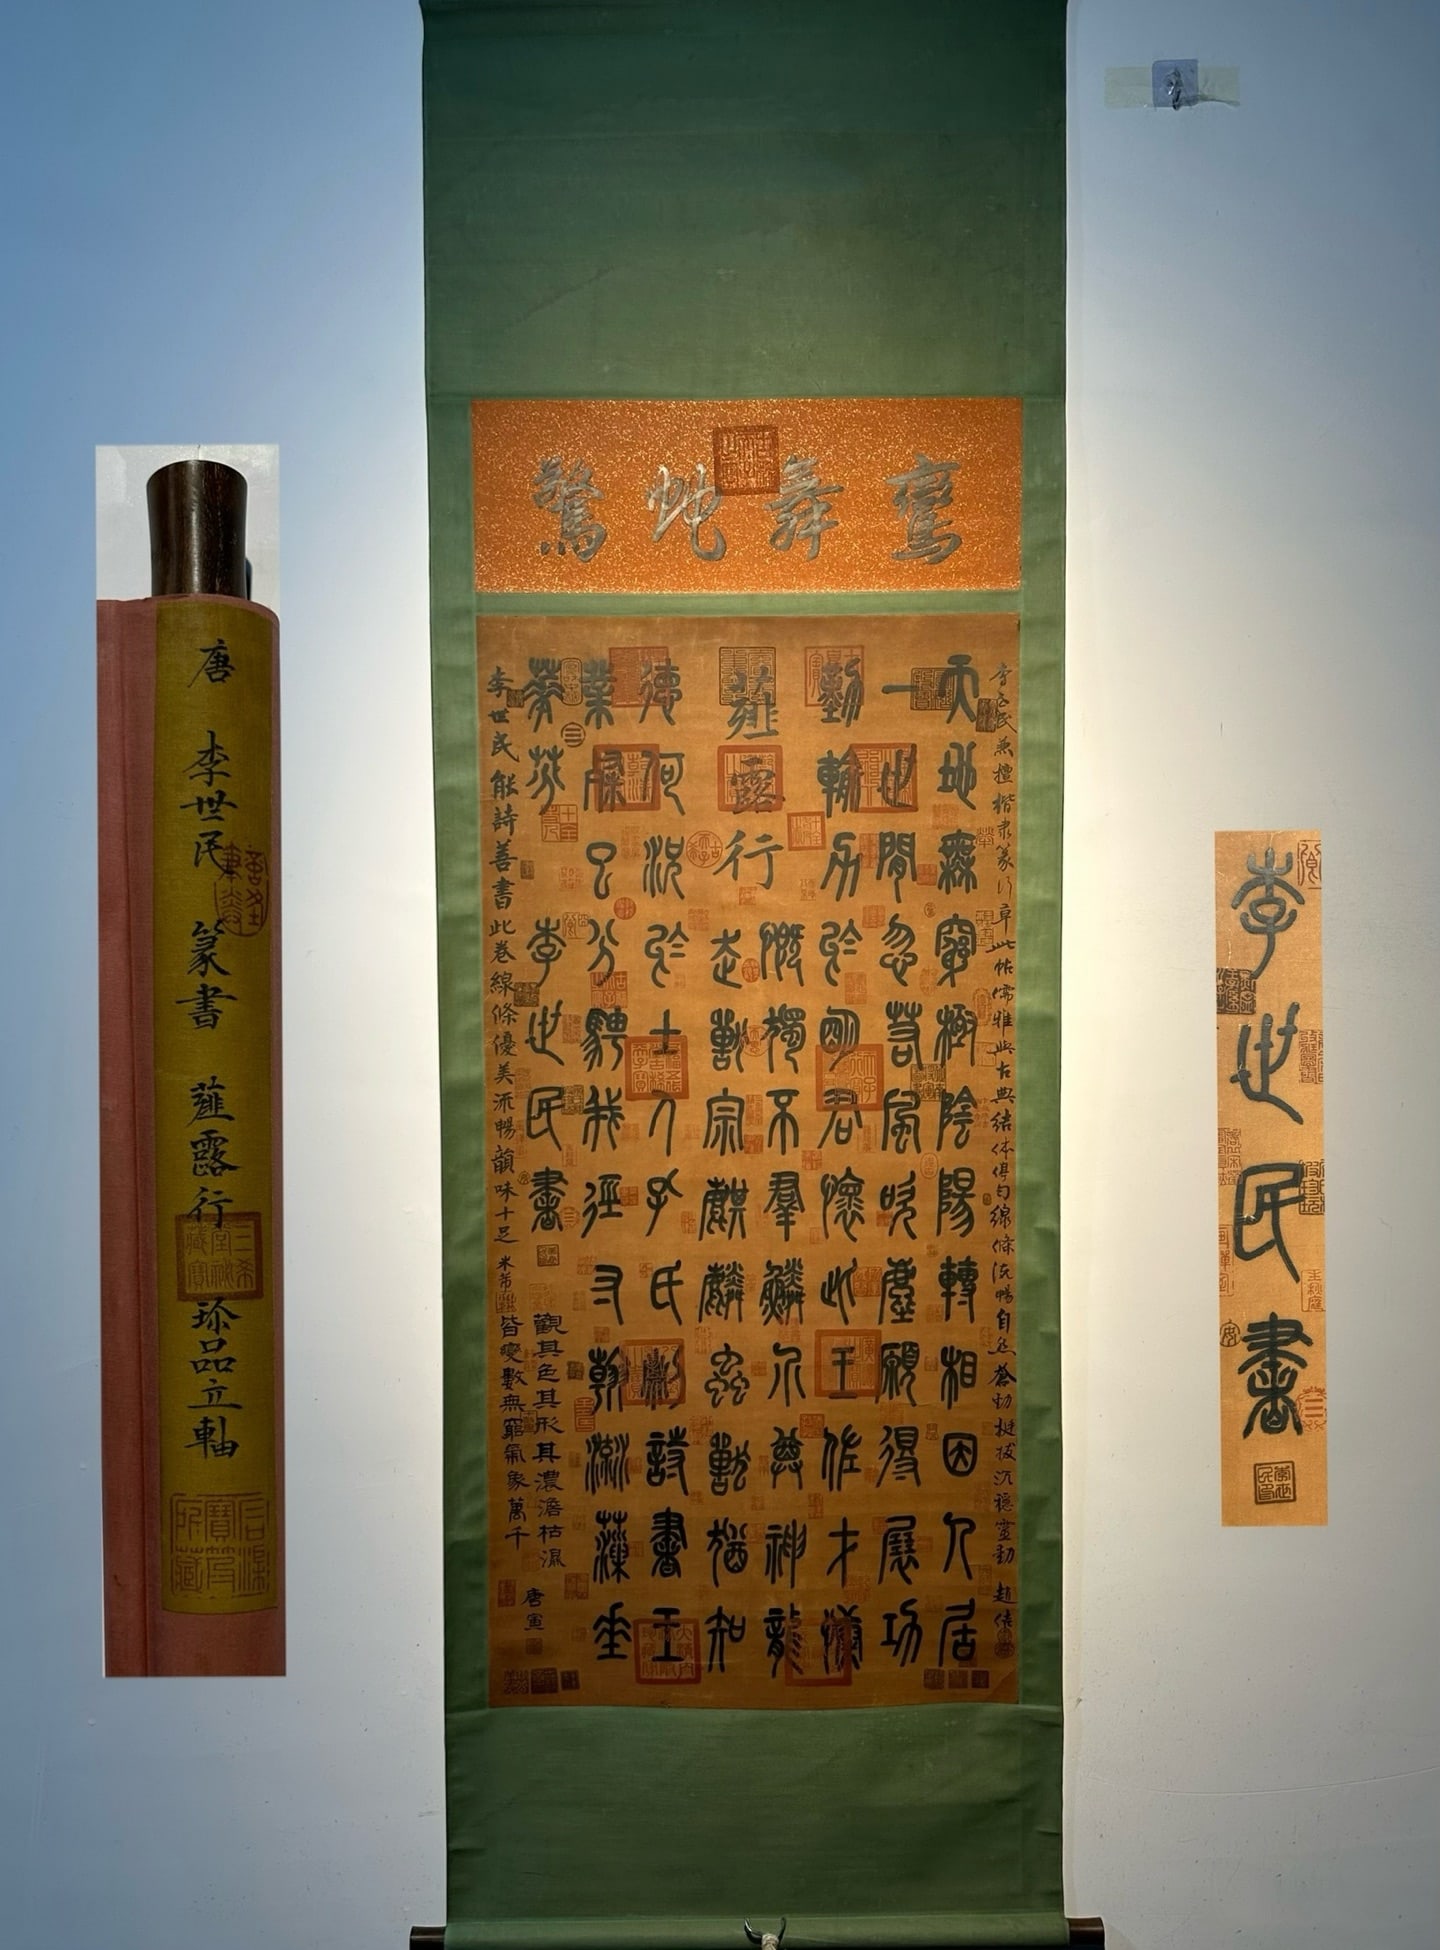 鸞舞蛇驚
李世民兼擅楷隶篆行草此帖儒雅與古典結体得勻線條流暢自然蒼勁挺拔沉穩靈動 趙佶
薤露行
天地無窮極陰陽轉相因人居
一世閒忽若風吹塵願得展功
勤輸力於明君懷此王佐才慷
慨獨不羣鱗介尊神龍
走獸宗麒麟蟲獸猶知
德何況於士人孔氏刪詩書王
業粲已分騁我徑寸翰流藻垂
華芬
李世民書
觀其色其形其濃澹枯濕
皆變數無窮氣象萬千
唐寅
李世民能詩善書此卷線條優美流暢韻味十足 米芾
唐 李世民 篆書 薤露行 珍品立軸
李世民書